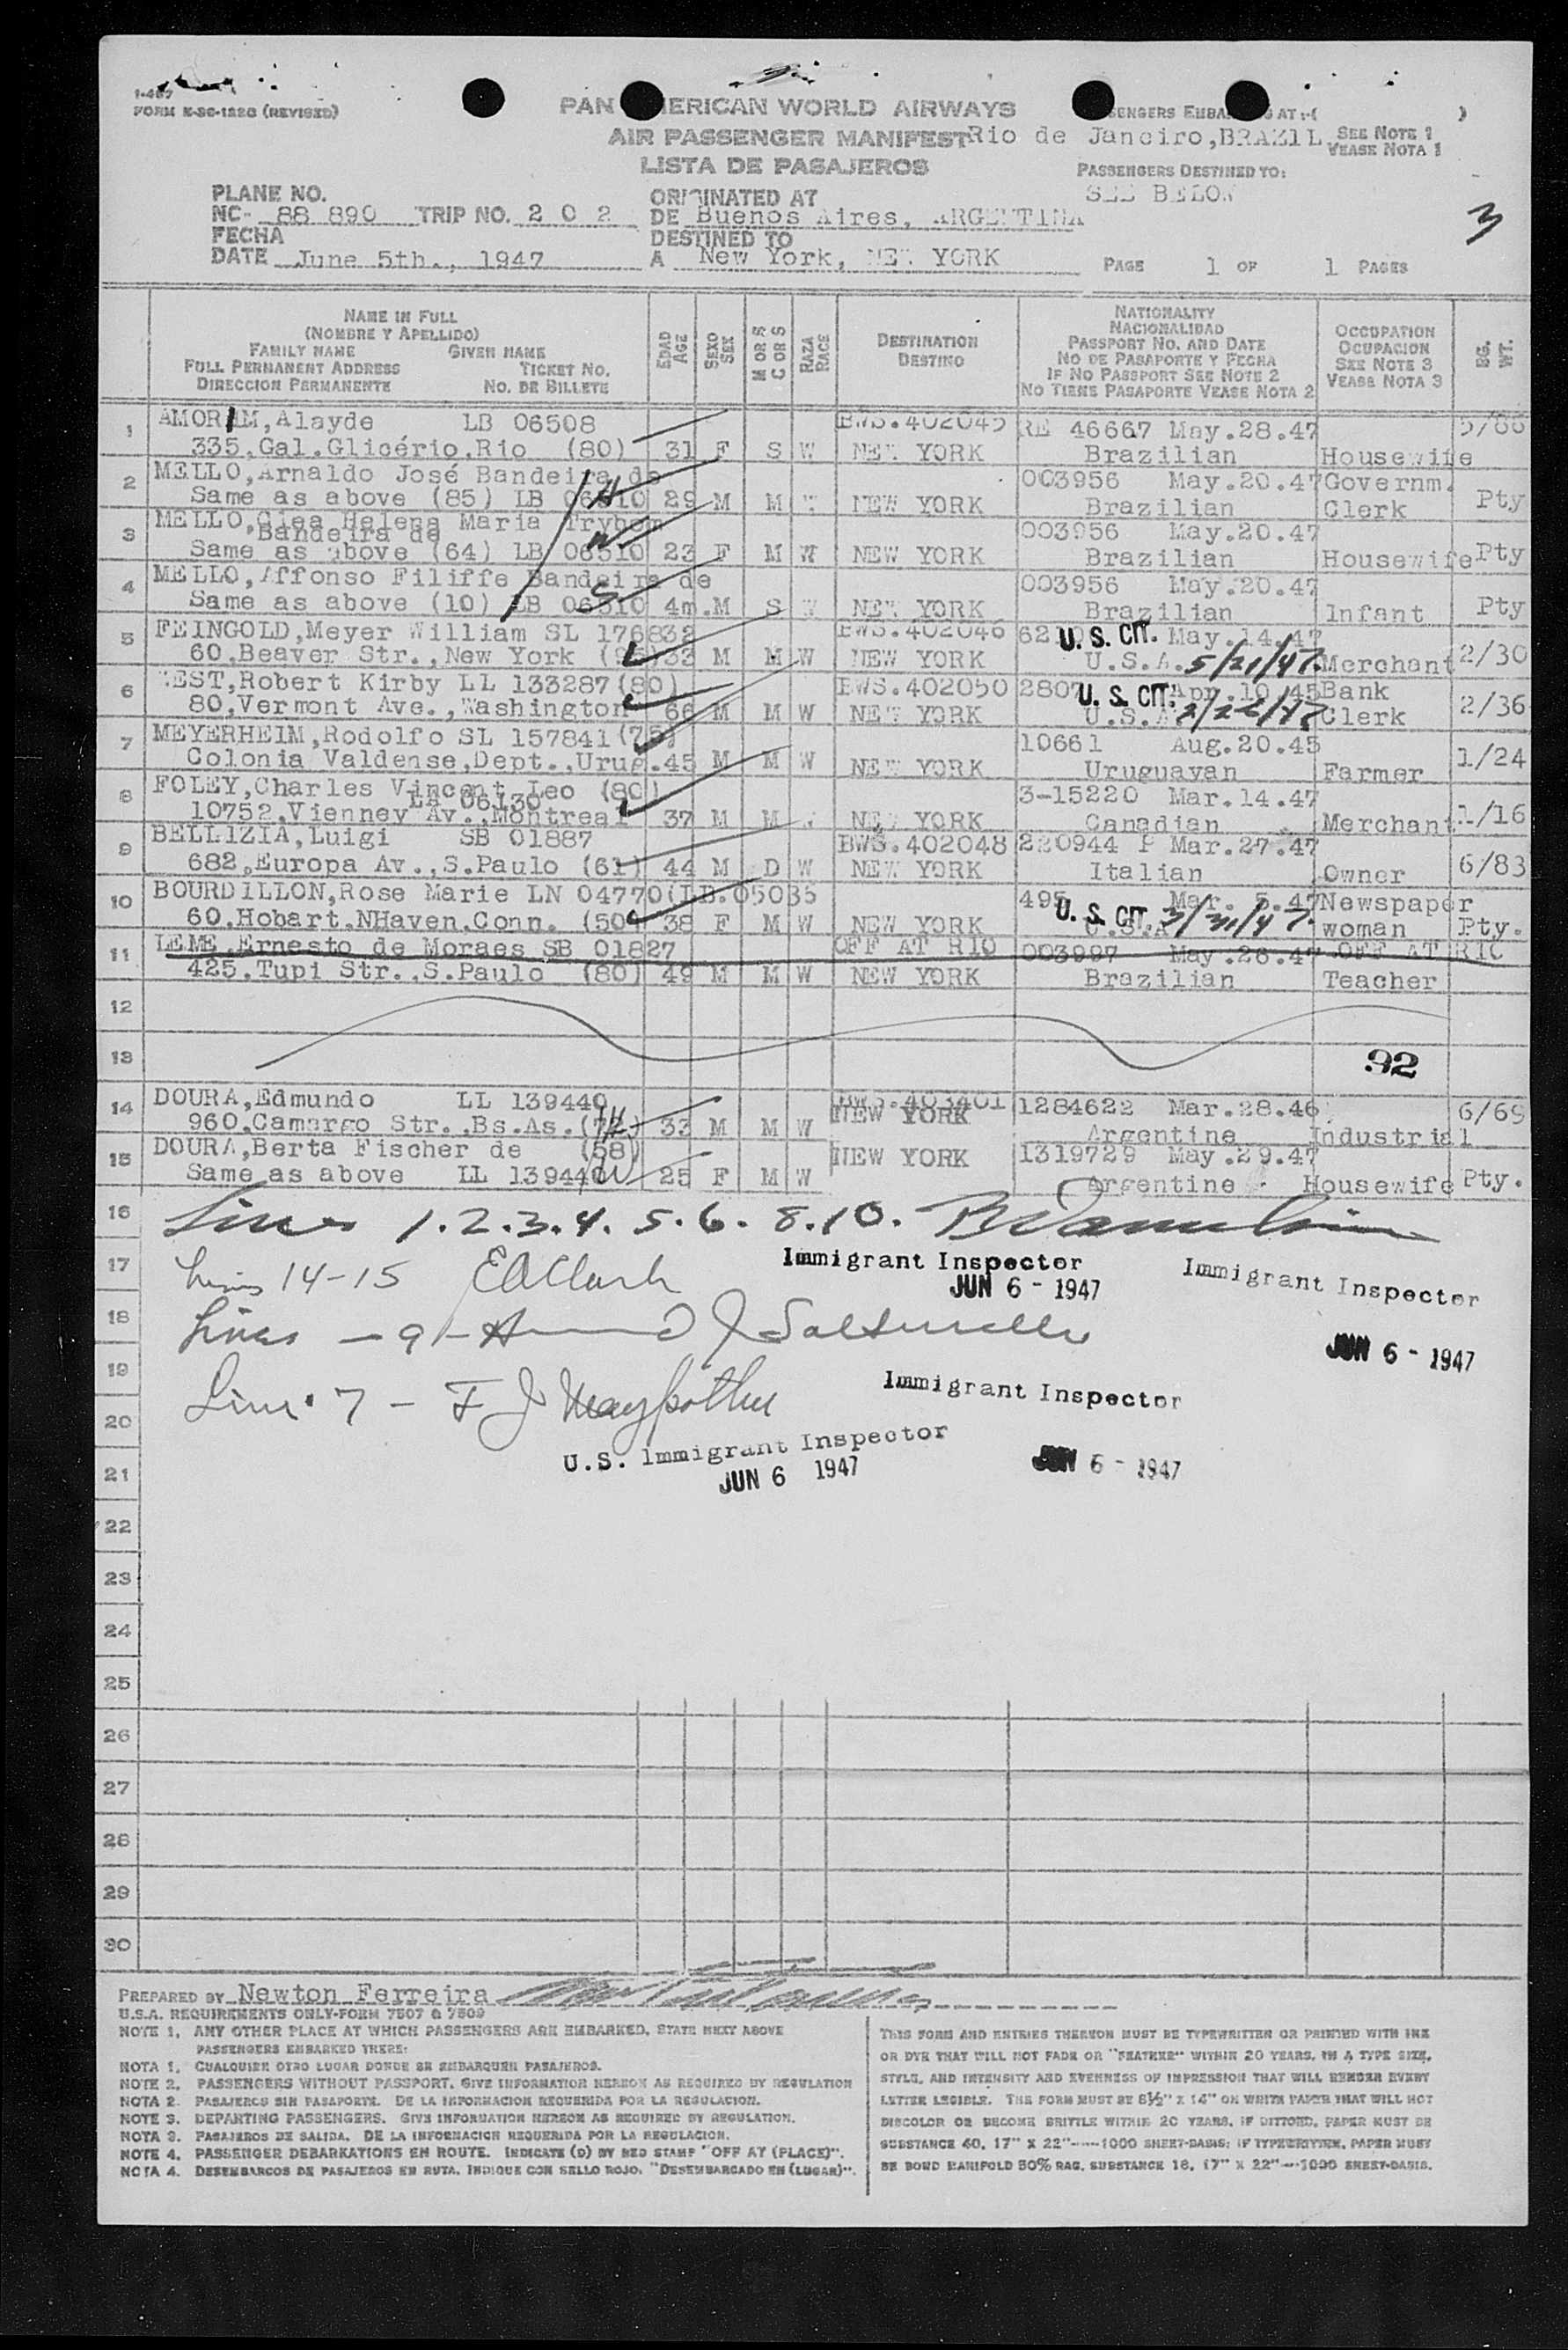 I-467
FORM K-SC-122G (REVISED)
PAN AMERICAN WORLD AIRWAYS
AIR PASSENGER MANIFEST
LISTA DE PASAJEROS
AT:-( )
Rio de Janeiro, BRAZIL
SEE NOTE 1
VEASE NOTA 1
PASSENGERS DESTINED TO:
SEE BELOW
3
PLANE NO.
NC- 88 890 TRIP NO. 2 0 2
FECHA
DATE June 5th., 1947
ORIGINATED AT
DE Buenos Aires, ARGENTINA
DESTINED TO
A New York, NEW YORK
PAGE 1 OF 1 PAGES
NAME IN FULL
(NOMBRE Y APELLIDO)
FAMILY NAME GIVEN NAME
FULL PERMANENT ADDRESS TICKET NO.
DIRECCION PERMANENTE NO. DE BILLETE
EDAD
AGE
SEXO
SEX
M OR S
C OR S
RAZA
RACE
DESTINATION
DESTINO
NATIONALITY
NACIONALIDAD
PASSPORT NO. AND DATE
NO DE PASAPORTE Y FECHA
IF NO PASSPORT SEE NOTE 2
NO TIENE PASAPORTE VEASE NOTA 2
OCCUPATION
OCUPACION
SEE NOTE 3
VEASE NOTA 3
BG.
WT.
1 AMORIM, Alayde LB 06508 BWS.402045 RE 46667 May.28.47
335,Gal.Glicério,Rio (80) 31 F S W NEW YORK Brazilian Housewife
2 MELLO,Arnaldo José Bandeira de 003956 May.20.47 Governm.
Same as above (85) LB 06510 29 M M W NEW YORK Brazilian Clerk Pty
3 MELLO, Helena Maria 003956 May.20.47
Bandeira de
Same as above (64) LB 06510 23 F M W NEW YORK Brazilian Housewife Pty
4 MELLO,Affonso Filiffe Bandeira de 003956 May.20.47
Same as above (10) LB 06510 4m. M S W NEW YORK Brazilian Infant Pty
5 FEINGOLD,Meyer William SL 176832 BWS.402046 U. S. CIT. May.14.47
60,Beaver Str.,New York 33 M M W NEW YORK U.S.A. 5/21/47 Merchant 2/30
6 WEST,Robert Kirby LL 133287 (80) BWS.402050 2807 U. S. CIT. Apr.10.45 Bank
80,Vermont Ave.,Washington 66 M M W NEW YORK U.S.A Clerk 2/36
7 MEYERHEIM,Rodolfo SL 157841 10661 Aug.20.45
Colonia Valdense,Dept.,Urug. 45 M M W NEW YORK Uruguayan Farmer 1/24
8 FOLEY,Charles Vincent Leo (80) 3-15220 Mar.14.47
LB 06130
10752,Vienney Av.,Montreal 37 M M W NEW YORK Canadian Merchant 1/16
9 BELLIZIA,Luigi SB 01887 BWS.402048 220944 P Mar.27.47
682,Europa Av.,S.Paulo (61) 44 M D W NEW YORK Italian Owner 6/83
10 BOURDILLON,Rose Marie LN 04770(LB.05035 495 Mar. 5.47 Newspaper
60,Hobart,NHaven,Conn. (50) 38 F M W NEW YORK U. S. CIT. U.S.A 3/31/47. woman Pty.
11 LEME,Ernesto de Moraes SB 01827 OFF AT RIO 003997 May.26.47 OFF AT RIO
425,Tupi Str.,S.Paulo (80) 49 M M W NEW YORK Brazilian Teacher
12
13 92
14 DOURA,Edmundo LL 139440 BWS.403401 1284622 Mar.28.46 6/69
960,Camargo Str.,Bs.As. 33 M M W NEW YORK Argentine Industrial
15 DOURA,Berta Fischer de (58) NEW YORK 1319729 May.29.47
Same as above LL 139440 25 F M W Argentine Housewife Pty.
16 Lines 1.2.3.4. 5.6. 8.10.
17 Lines 14-15 E A Clark Immigrant Inspector Immigrant Inspector
JUN 6 - 1947
18 Lines - 9 -
JUN 6 - 1947
19 Line 7 - F J Immigrant Inspector
20
U.S. Immigrant Inspector
21 JUN 6 1947 JUN 6 - 1947
22
23
24
25
26
27
28
29
30
PREPARED BY Newton Ferreira
U.S.A. REQUIREMENTS ONLY-FORM 7507 & 7509
NOTE 1. ANY OTHER PLACE AT WHICH PASSENGERS ARE EMBARKED, STATE NEXT ABOVE
PASSENGERS EMBARKED THERE:
NOTA 1. CUALQUIER OTRO LUGAR DONDE SE EMBARQUEN PASAJEROS.
NOTE 2. PASSENGERS WITHOUT PASSPORT, GIVE INFORMATION HEREON AS REQUIRED BY REGULATION
NOTA 2. PASAJEROS SIN PASAPORTE. DE LA INFORMACION REQUERIDA POR LA REGULACION.
NOTE 3. DEPARTING PASSENGERS. GIVE INFORMATION HEREON AS REQUIRED BY REGULATION.
NOTA 3. PASAJEROS DE SALIDA. DE LA INFORMACION REQUERIDA POR LA REGULACION.
NOTE 4. PASSENGER DEBARKATIONS EN ROUTE. INDICATE (D) BY RED STAMP "OFF AT (PLACE)".
NOTA 4. DESEMBARCOS DE PASAJEROS EN RUTA. INDIQUE CON SELLO ROJO. "DESEMBARCADO EN (LUGAR)".
THIS FORM AND ENTRIES THEREON MUST BE TYPEWRITTEN OR PRINTED WITH INK
OR DYE THAT WILL NOT FADE OR "FEATHER" WITHIN 20 YEARS, IN A TYPE SIZE,
STYLE, AND INTENSITY AND EVENNESS OF IMPRESSION THAT WILL RENDER EVERY
LETTER LEGIBLE. THE FORM MUST BE 8½" X 14" ON WHITE PAPER THAT WILL NOT
DISCOLOR OR BECOME BRITTLE WITHIN 20 YEARS. IF DITTOED, PAPER MUST BE
SUBSTANCE 40, 17" X 22"----1000 SHEET-BASIS; IF TYPEWRITTEN, PAPER MUST
BE BOND MANIFOLD 50% RAG, SUBSTANCE 18, 17" X 22"---1000 SHEET-BASIS.